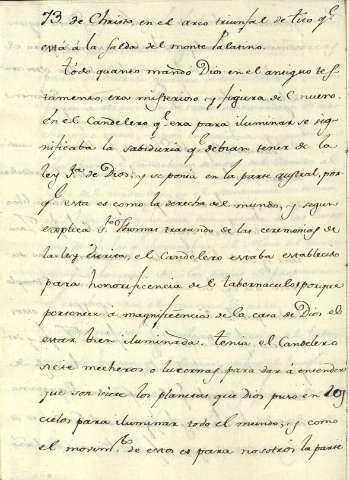 73. de Christo, en el arco triunfal de Tito q.e
està á la falda del monte Palatino.
Todo quanto mandò Dios en el antiguo tes-
tamento, era misterioso, y figura de el nuevo.
En el Candelero q.e era para iluminar se sig-
nificaba la sabiduria q.e debian tener de la
ley S.ta de Dios, y se ponia en la parte austral, por
q.e esta es como la derecha del mundo, y segun
explica S.to Thomas tratando de las ceremonias de
la ley escrita, el Candelero estaba establecido
para honorificencia del tabernaculo; porque
pertenece a magnificencia de la casa de Dios el
estar bien iluminada. Tenia el Candelero
siete mecheros o lucernas para dar à entender
que son siete los planetas que dios puso en los
cielos para iluminar todo el mundo; y como
el movim.to de estos es para nosotros la parte